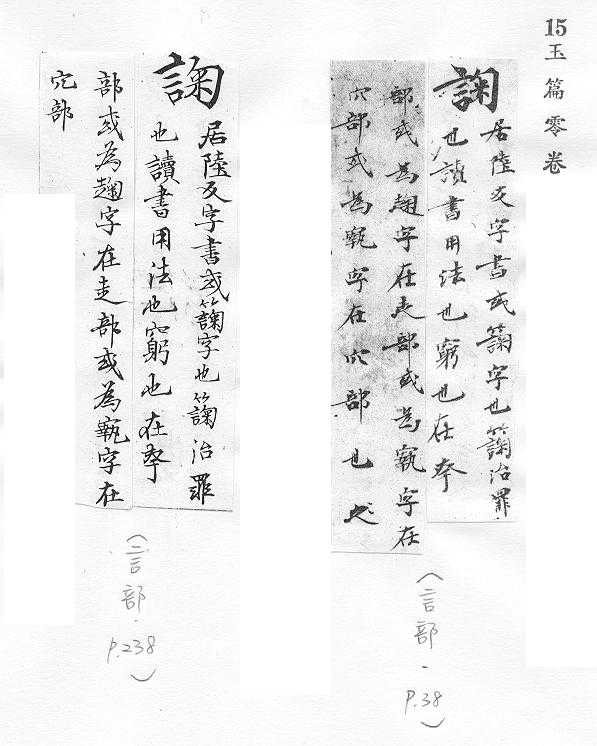 15
玉篇零卷
䛤
居陸反字書或䉤字也䉤治罪
也讀書用法也窮也在㚔
部或為趜字在走部或為竅字在
穴部或為竅字在穴部也
(言部.
P.38)
䛤
居陸反字書或䉤字也䉤治罪
也讀書用法也窮也在㚔
部或為趜字在走部或為竅字在
穴部
(言部.
P.238)